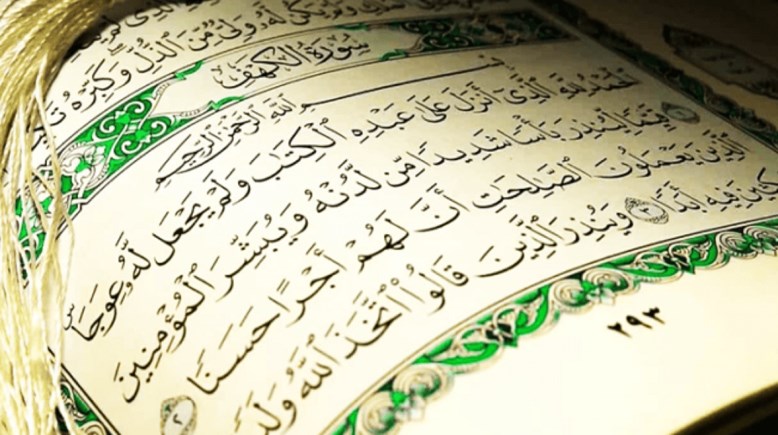 وَلِىٌّ مِّنَ ٱلذُّلِّ وَكَبِّرْهُ
سورة الكهف
بسم الله الرحمن الرحيم
ٱلْحَمْدُ لِلَّهِ ٱلَّذِىٓ أَنزَلَ عَلَىٰ عَبْدِهِ ٱلْكِتَٰبَ وَلَمْ يَجْعَل لَّهُۥ عِوَجَا ۜ ١
قَيِّمًا لِّيُنذِرَ بَأْسًا شَدِيدًا مِّن لَّدُنْهُ وَيُبَشِّرَ ٱلْمُؤْمِنِينَ
ٱلَّذِينَ يَعْمَلُونَ ٱلصَّٰلِحَٰتِ أَنَّ لَهُمْ أَجْرًا حَسَنًا ٢
كِثِينَ فِيهِ أَبَدًا ٣ وَيُنذِرَ ٱلَّذِينَ قَالُوا۟ ٱتَّخَذَ ٱللَّهُ وَلَدً
٢٩٣